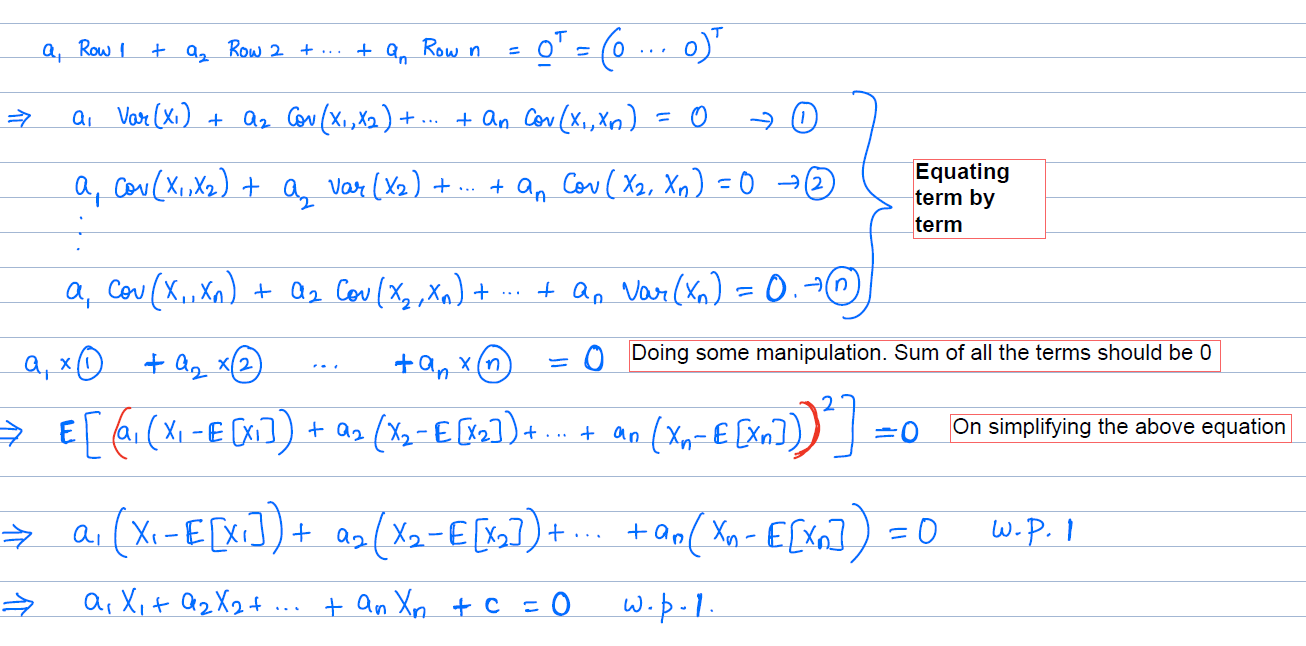 a₁ Row 1 + a₂ Row 2 + ... + aₙ Row n = 0ᵀ = (0 ... 0)ᵀ
⇒ a₁ Var(X₁) + a₂ Cov(X₁,X₂) + ... + aₙ Cov(X₁,Xₙ) = 0 → ①
a₁ Cov(X₁,X₂) + a₂ Var(X₂) + ... + aₙ Cov(X₂, Xₙ) = 0 → ②
Equating
term by
term
⋮
a₁ Cov(X₁,Xₙ) + a₂ Cov(X₂,Xₙ) + ... + aₙ Var(Xₙ) = 0. → ⓝ
a₁ × ① + a₂ × ② ... + aₙ × ⓝ = 0 Doing some manipulation. Sum of all the terms should be 0
⇒ E[(a₁(X₁-E[X₁]) + a₂(X₂-E[X₂]) + ... + aₙ(Xₙ-E[Xₙ]))²] = 0 On simplifying the above equation
⇒ a₁(X₁-E[X₁]) + a₂(X₂-E[X₂]) + ... + aₙ(Xₙ-E[Xₙ]) = 0 w.p. 1
⇒ a₁X₁ + a₂X₂ + ... + aₙXₙ + c = 0 w.p.1.